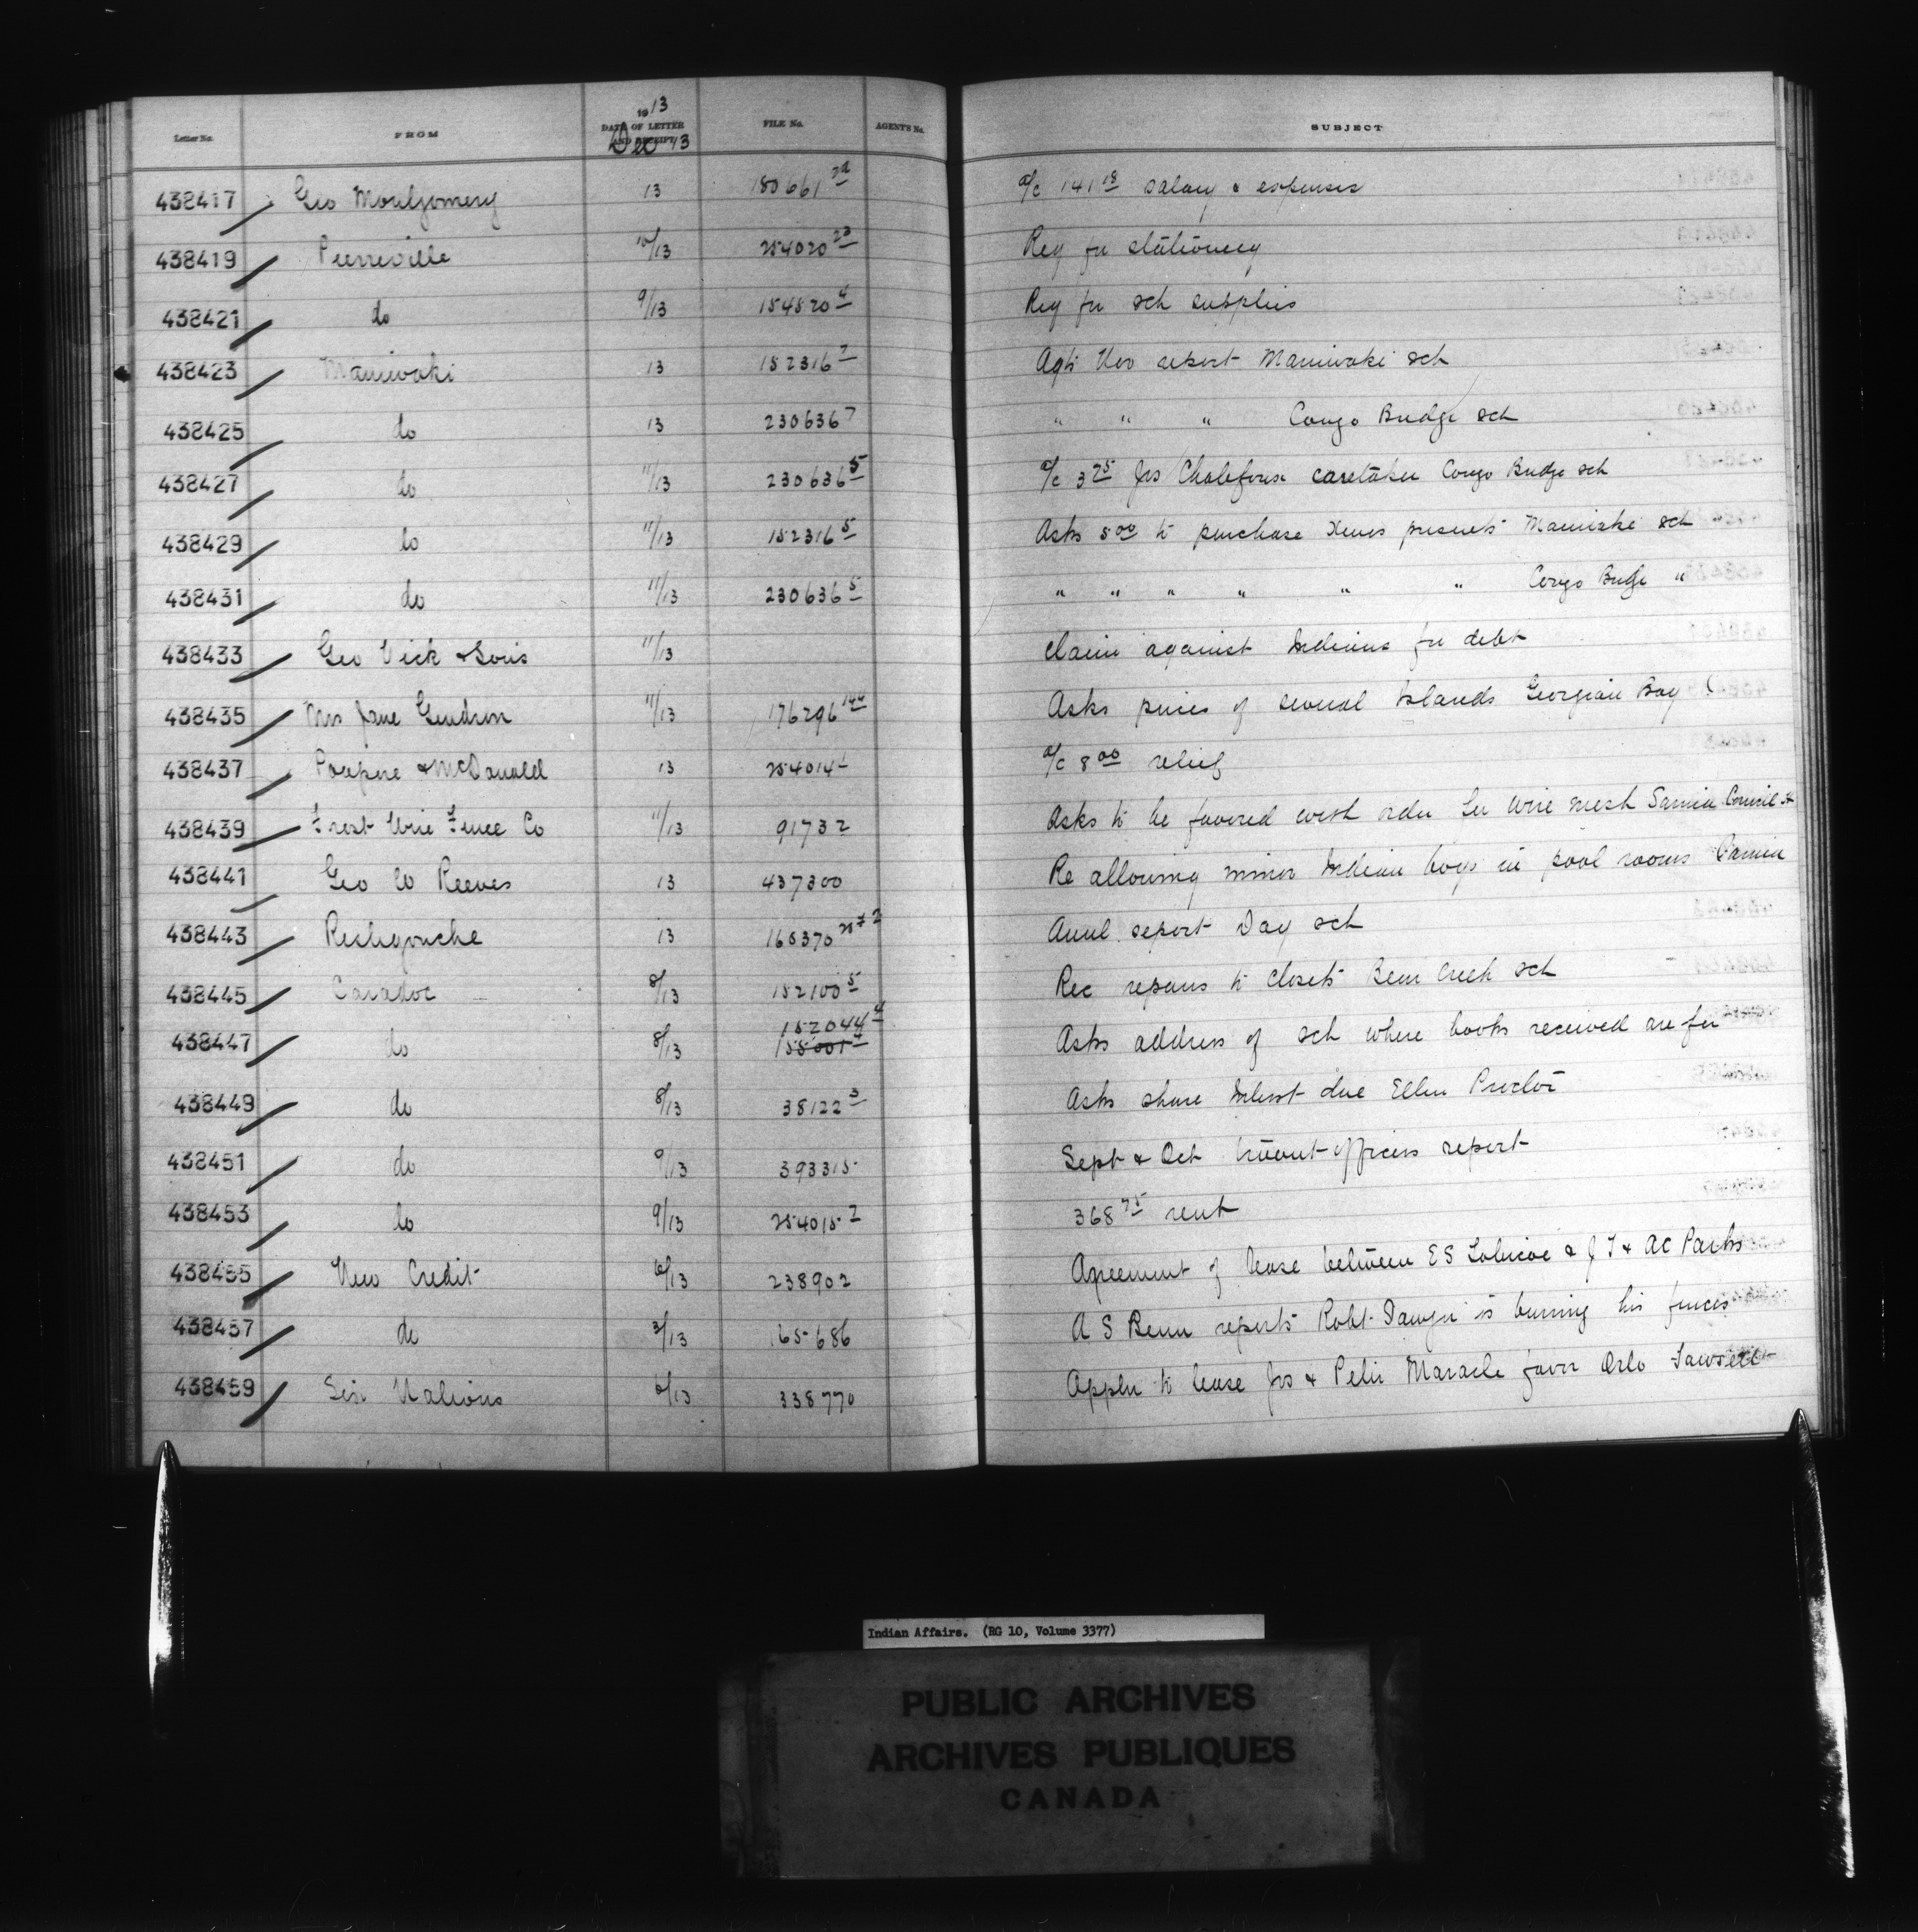 Letter No. FROM 1913 DATE OF LETTER AND RECEIPT Dec 13 FILE No. AGENTS No. SUBJECT
438417 Geo Montgomery 13 180661 a/c 141 18 salary & expenses
438419 Pierreville 10/13 254020 23 Req for stationery
438421 do 9/13 154520 4 Req for sch supplies
438423 Maniwaki 13 152316 7 Agts Nov report Maniwaki sch
438425 do 13 230636 7 " " " Congo Bridge sch
438427 do 11/13 230636 5 a/c 3 75 Jos caretaker Congo Bridge sch
438429 do 11/13 152316 5 Asks 5 00 to purchase Xmas presents Maniwaki sch
438431 do 11/13 230636 5 " " " " " " Congo Bridge "
438433 Geo Vick & Sons 11/13 Claim against Indians for debt
438435 Mrs Jane Gendron 11/13 176296 144 Asks prices of several Islands Georgian Bay
438437 Poupore & McDonald 13 254014 a/c 8 00 relief
438439 Frost Wire Fence Co 11/13 91732 Asks to be favored with order for wire mesh Sarnia Council
438441 Geo W Reeves 13 437300 Re allowing minor Indian boys in pool rooms Sarnia
438443 Restigouche 13 165370 Annl report Day sch
438445 Caradoc 8/13 152100 5 Rec repairs to closets Bear Creek sch
438447 do 8/13 152044 4 155001 4 Asks address of sch where books received are for
438449 do 8/13 38122 3 Asks share Interest due Ellen Proctor
438451 do 9/13 393315 Sept & Oct truant officers report
438453 do 9/13 254015 2 368 75 rent
438455 New Credit 6/13 238902 Agreement of lease between E S & J T & A C Parks
438457 do 3/13 165686 A S reports Robt Sawyer is burning his fences
438459 Six Nations 6/13 338770 Appln to lease Jos & Peter Maracle favor Orlo
Indian Affairs. (RG 10, Volume 3377)
PUBLIC ARCHIVES
ARCHIVES PUBLIQUES
CANADA